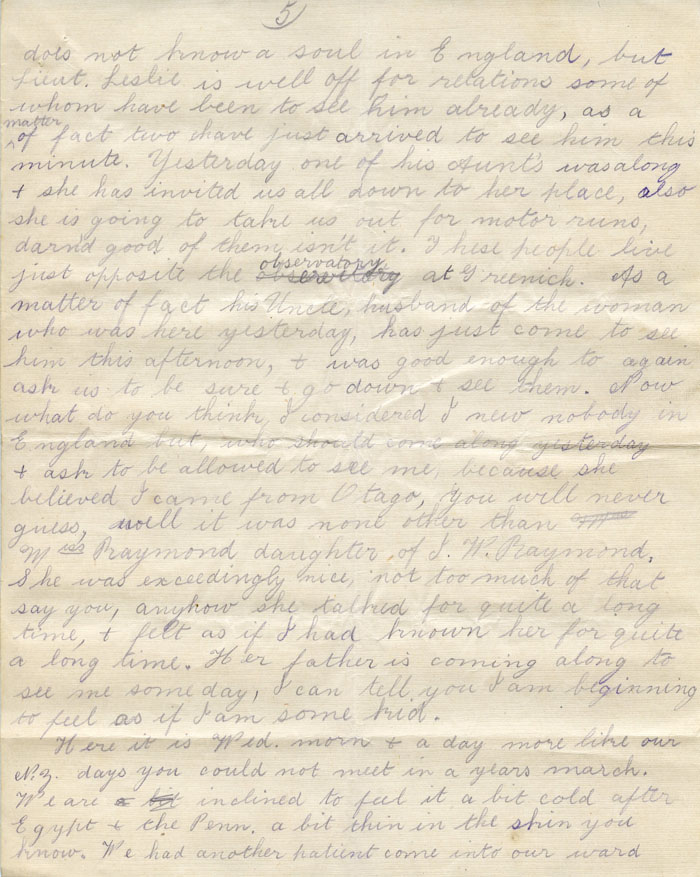 5)
does not know a soul in England, but
Lieut. Leslie is well off for relations some of
whom have been to see him already, as a
matter
of fact two have just arrived to see him this
minute. Yesterday one of his Aunt's was along
+ she has invited us all down to her place, also
she is going to take us out for motor runs,
darn'd good of them isn't it. These people live
observatory
just opposite the at Greenich. As a
matter of fact his Uncle, husband of the woman
who was here yesterday, has just come to see
him this afternoon, + was good enough to again
ask us to be sure + go down + see them. Now
what do you think, I considered I new nobody in
England but, who should come along yesterday
+ ask to be allowed to see me, because she
believed I came from Otago, you will never
guess, well it was none other than
Miss Raymond daughter of J. W. Raymond.
She was exceedingly nice, not too much of that
say you, anyhow she talked for quite a long
time, + felt as if I had known her for quite
a long time. Her father is coming along to
see me some day, I can tell you I am beginning
to feel as if I am some kid.
Here it is Wed. morn + a day more like our
N.Z. days you could not meet in a years march.
We are a bit inclined to feel it a bit cold after
Egypt + the Penn. a bit thin in the skin you
know. We had another patient come into our ward